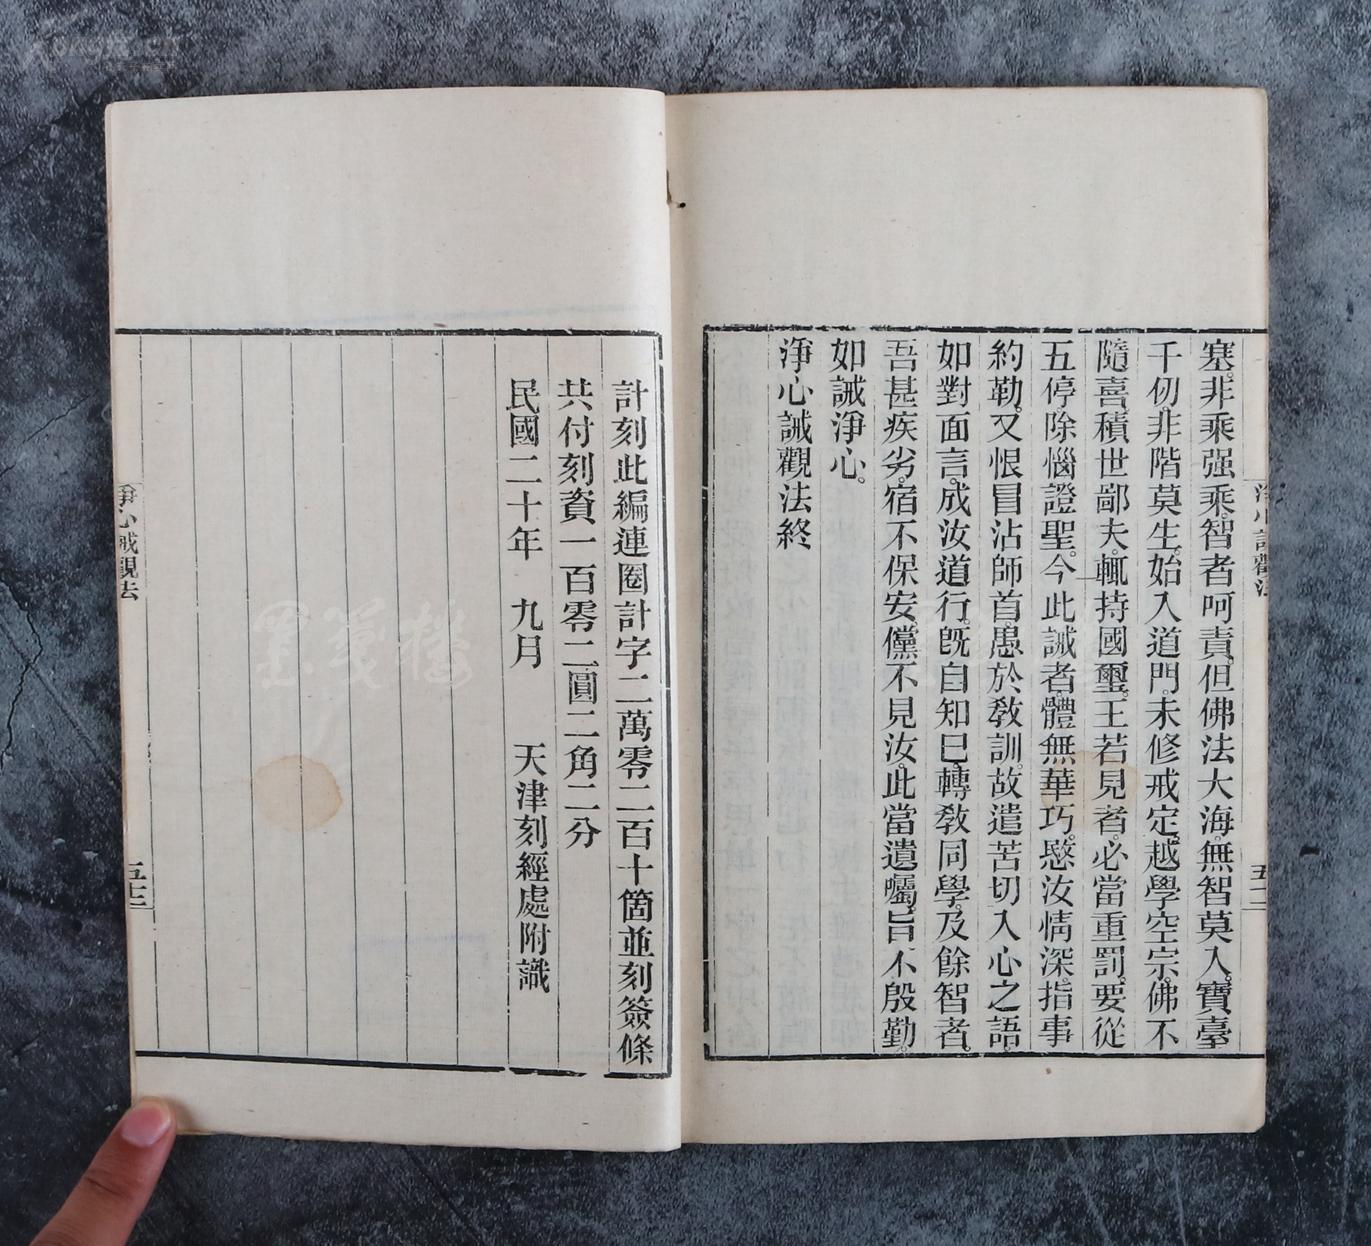 塞。非乘强乘。智者呵責。但佛法大海。無智莫入。寶臺
千仞。非階莫生。始入道門。未修戒定。越學空宗。佛不
隨喜。積世鄙夫。輒持國璽。王若見者。必當重罰。要從
五停。除惱證聖。今此誡者。體無華巧。愍汝情深。指事
約勒。又恨冒沾師首。愚於敎訓。故遣苦切入心之語。
如對面言。成汝道行。旣自知已。轉敎同學。及餘智者。
吾甚疾劣。宿不保安。儻不見汝。此當遺囑。旨不殷勤。
如誡淨心。
淨心誡觀法終
淨心誡觀法
五十二
計刻此編連圈計字二萬零二百十箇並刻簽條
共付刻資一百零二圓二角二分
民國二十年 九月 天津刻經處附識
淨心誡觀法
墨箋樓